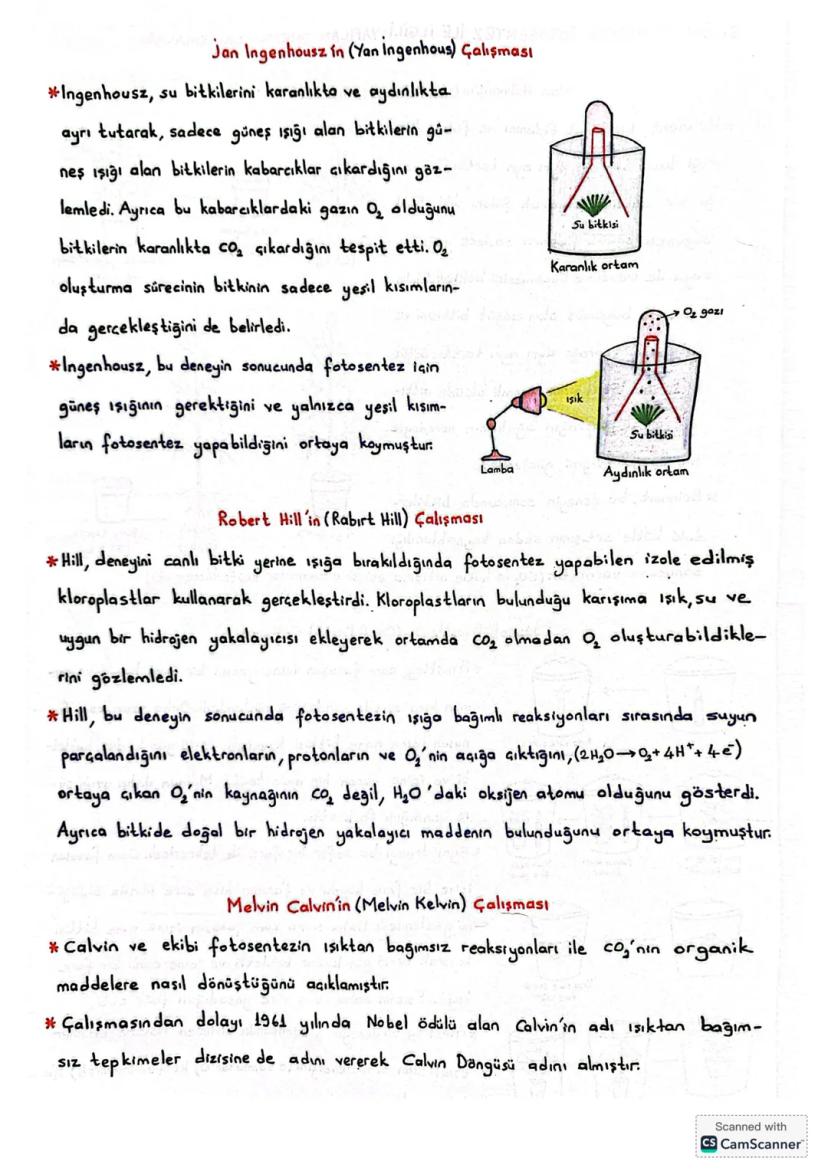 Jan Ingenhousz'ın (Yan Ingenhous) Çalışması
*Ingenhousz, su bitkilerini karanlıkta ve aydınlıkta
ayrı tutarak, sadece güneş ışığı alan bitkilerin gü-
neş ışığı alan bitkilerin kabarcıklar çıkardığını göz-
lemledi. Ayrıca bu kabarcıklardaki gazın O₂ olduğunu
bitkilerin karanlıkta CO₂ çıkardığını tespit etti. O₂
oluşturma sürecinin bitkinin sadece yeşil kısımların-
da gerçekleştiğini de belirledi.
*Ingenhousz, bu deneyin sonucunda fotosentez için
güneş ışığının gerektiğini ve yalnızca yeşil kısım-
ların fotosentez yapabildiğini ortaya koymuştur.
Su bitkisi
Karanlık ortam
O₂ gazı
ışık
Su bitkisi
Lamba
Aydınlık ortam
Robert Hill'in (Rabırt Hill) Çalışması
*Hill, deneyini canlı bitki yerine ışığa bırakıldığında fotosentez yapabilen izole edilmiş
kloroplastlar kullanarak gerçekleştirdi. Kloroplastların bulunduğu karışıma ışık, su ve
uygun bir hidrojen yakalayıcısı ekleyerek ortamda CO₂ olmadan O₂ oluşturabildikle-
rini gözlemledi.
*Hill, bu deneyin sonucunda fotosentezin ışığa bağımlı reaksiyonları sırasında suyun
parçalandığını elektronların, protonların ve O₂'nin açığa çıktığını, (2H₂O→O₂+4H⁺+4e⁻)
ortaya çıkan O₂'nin kaynağının CO₂ değil, H₂O'daki oksijen atomu olduğunu gösterdi.
Ayrıca bitkide doğal bir hidrojen yakalayıcı maddenin bulunduğunu ortaya koymuştur.
Melvin Calvin'in (Melvin Kelvin) Çalışması
*Calvin ve ekibi fotosentezin ışıktan bağımsız reaksiyonları ile CO₂'nin organik
maddelere nasıl dönüştüğünü açıklamıştır.
*Çalışmasından dolayı 1961 yılında Nobel ödülü alan Calvin'in adı ışıktan bağım-
sız tepkimeler dizisine de adını vererek Calvin Döngüsü adını almıştır.
Scanned with
CS CamScanner